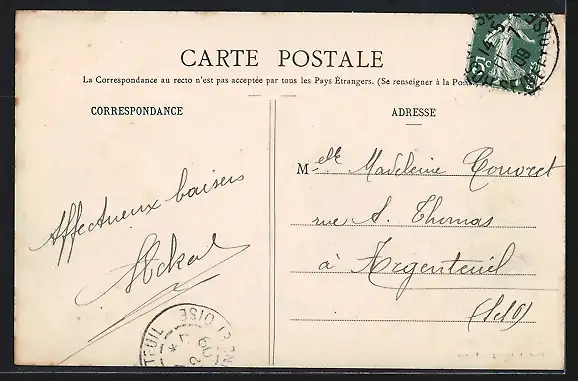 CARTE POSTALE
La Correspondance au recto n'est pas acceptée par tous les Pays Étrangers. (Se renseigner à la Pos
CORRESPONDANCE
ADRESSE
Affectueux baisers
Melle Madeleine Couvret
rue A. Thomas
à Argenteuil
(S et O)
5c
08
TEUIL
ET OISE